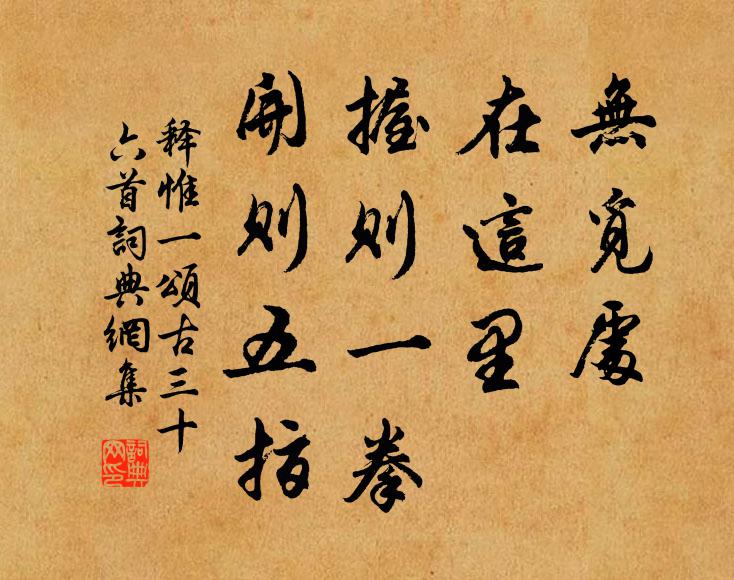 無覓處
在這里
握則一拳
開則五指
释惟一頌古三十
六首詞典網集
詞典
网印